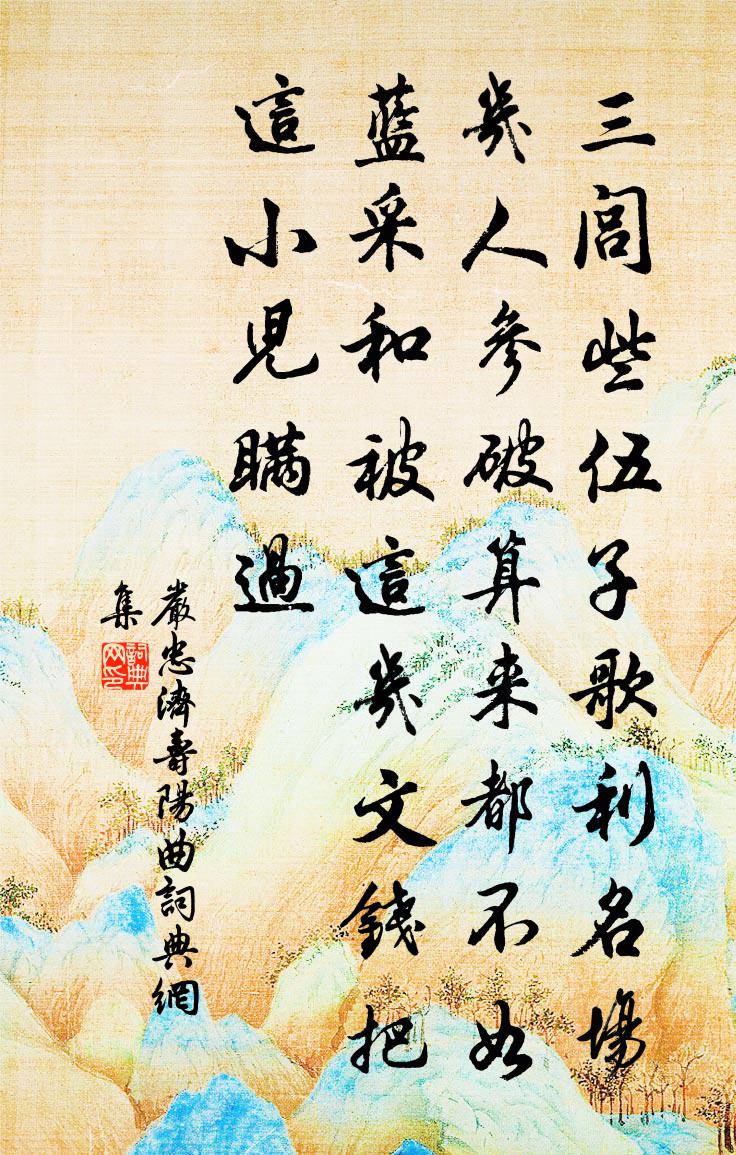 三閭些伍子歌利名場
幾人參破算来都不如
藍采和被這幾文錢把
這小児瞞過
嚴忠濟壽陽曲詞典網
集
詞典
网印